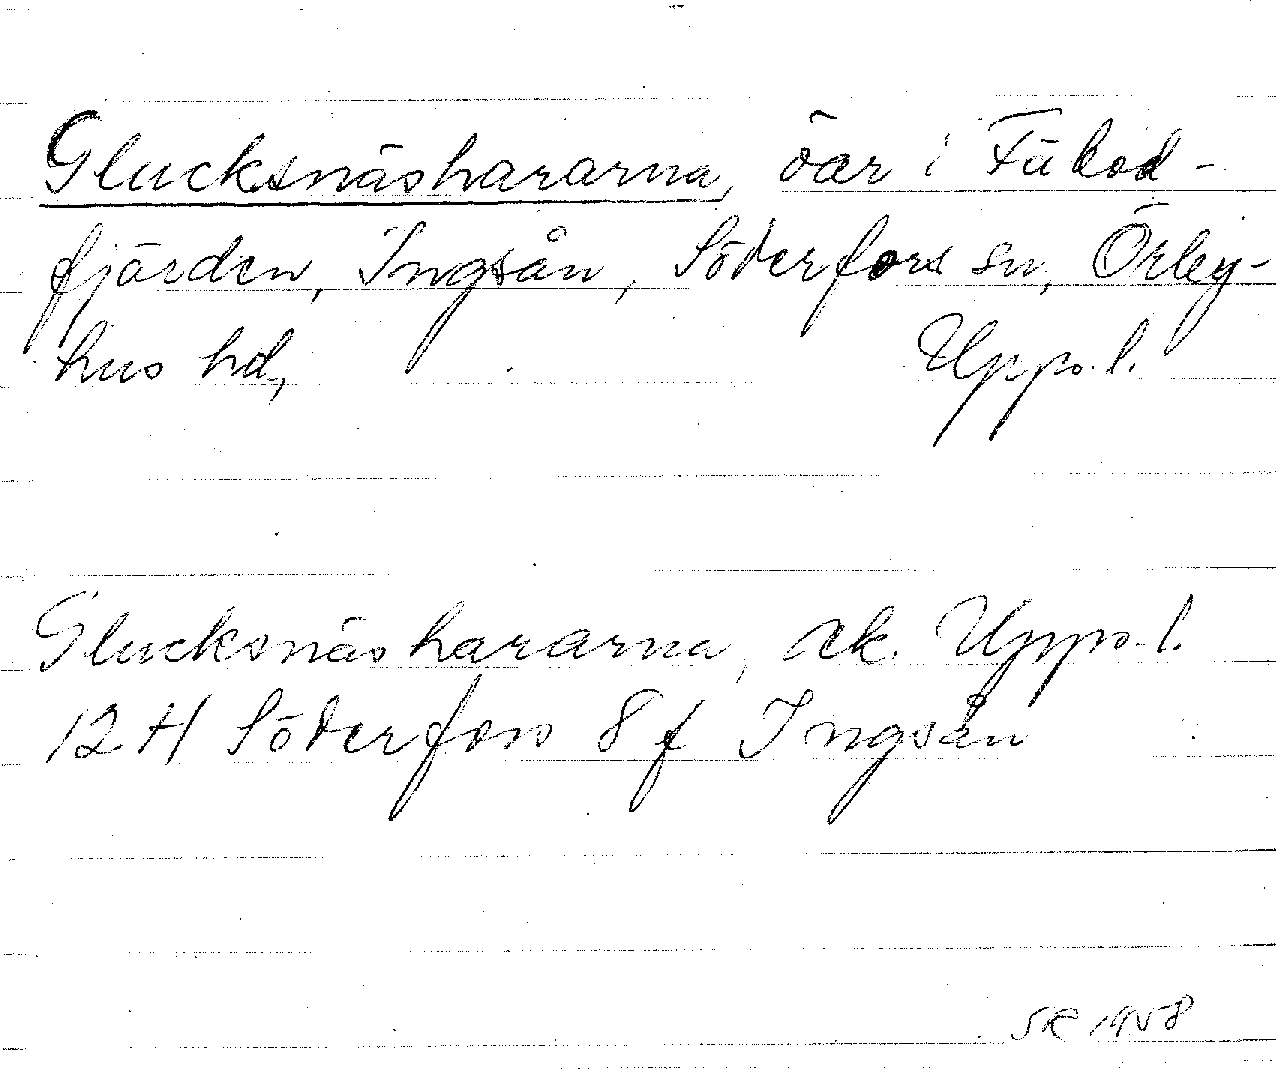 Glucksnäshararna, öar i Fäbod-
fjärden, Ingsån, Söderfors sn, Örby-
hus hd, Upps. l.
Glucksnäshararna, ek. Upps. l.
12 H Söderfors 8 f Ingsån
SR 1958